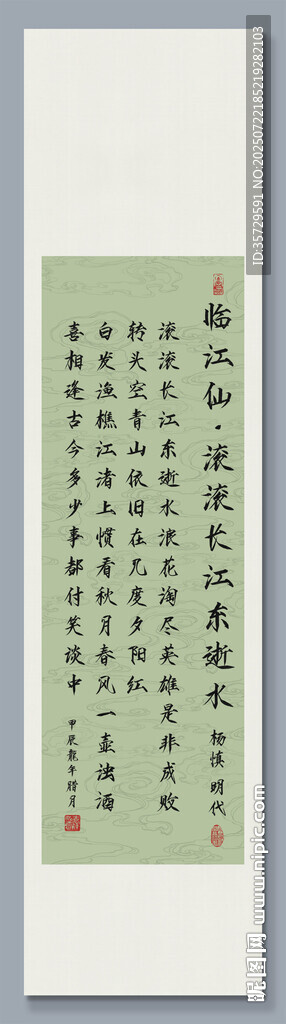 临江仙·滚滚长江东逝水
杨慎 明代
滚滚长江东逝水浪花淘尽英雄是非成败
转头空青山依旧在几度夕阳红
白发渔樵江渚上惯看秋月春风一壶浊酒
喜相逢古今多少事都付笑谈中
甲辰龍年腊月
ID:35729591 NO:20250722185219282103
昵图网 www.nipic.com